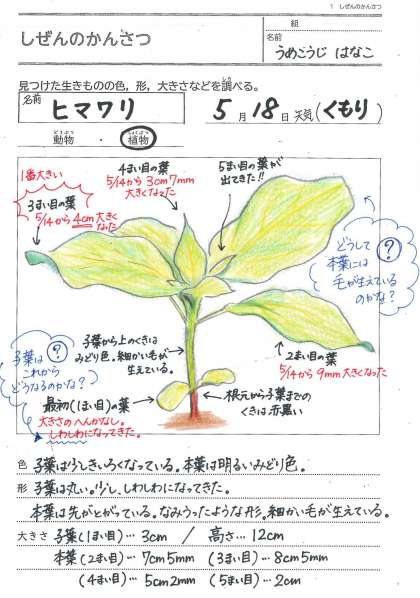 1 しぜんのかんさつ
しぜんのかんさつ
組
名前
うめこうじ はなこ
見つけた生きものの色，形，大きさなどを調べる。
名前
ヒマワリ
5月18日 天気(くもり)
動物 ・ 植物
どうぶつ しょくぶつ
1番大きい
3まい目の葉
5/14から4cm大きく
なった
4まい目の葉
5/14から3cm7mm
大きくなった
5まい目の葉が
出てきた!!
?
どうして
本葉には
毛が生えている
のかな?
子葉から上のくきは
みどり色。細かい毛が
生えている。
2まい目の葉
5/14から9mm大きくなった
?
子葉は
これから
どうなるのかな?
最初(1まい目)の葉
大きさのへんかなし。
しわしわになってきた。
根元から子葉までの
くきは赤黒い
色 子葉は少しきいろくなっている。本葉は明るいみどり色。
形 子葉は丸い。少し、しわしわになってきた。
本葉は先がとがっている。なみうったような形。細かい毛が生えている。
大きさ 子葉(1まい目)… 3cm / 高さ… 12cm
本葉(2まい目)… 7cm5mm (3まい目)… 8cm5mm
(4まい目)… 5cm2mm (5まい目)… 2cm